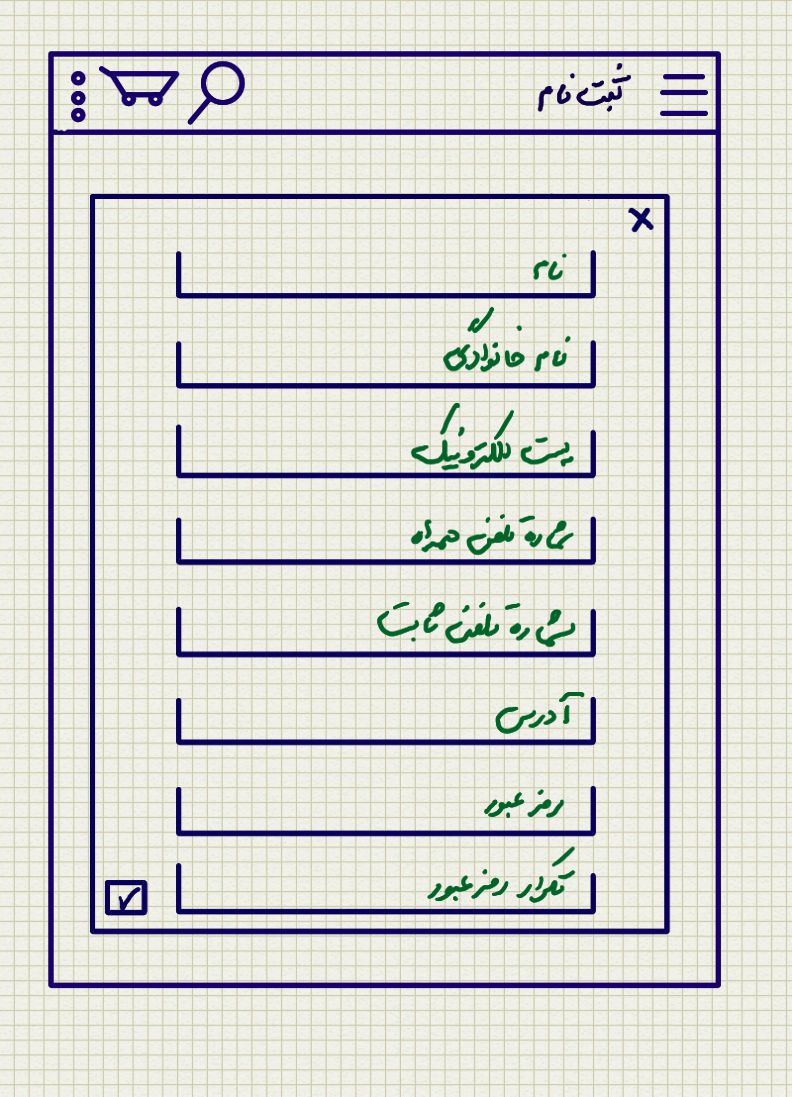 ثبت نام
نام
نام خانوادگی
پست الکترونیک
شماره تلفن همراه
شماره تلفن ثابت
آدرس
رمز عبور
تکرار رمز عبور